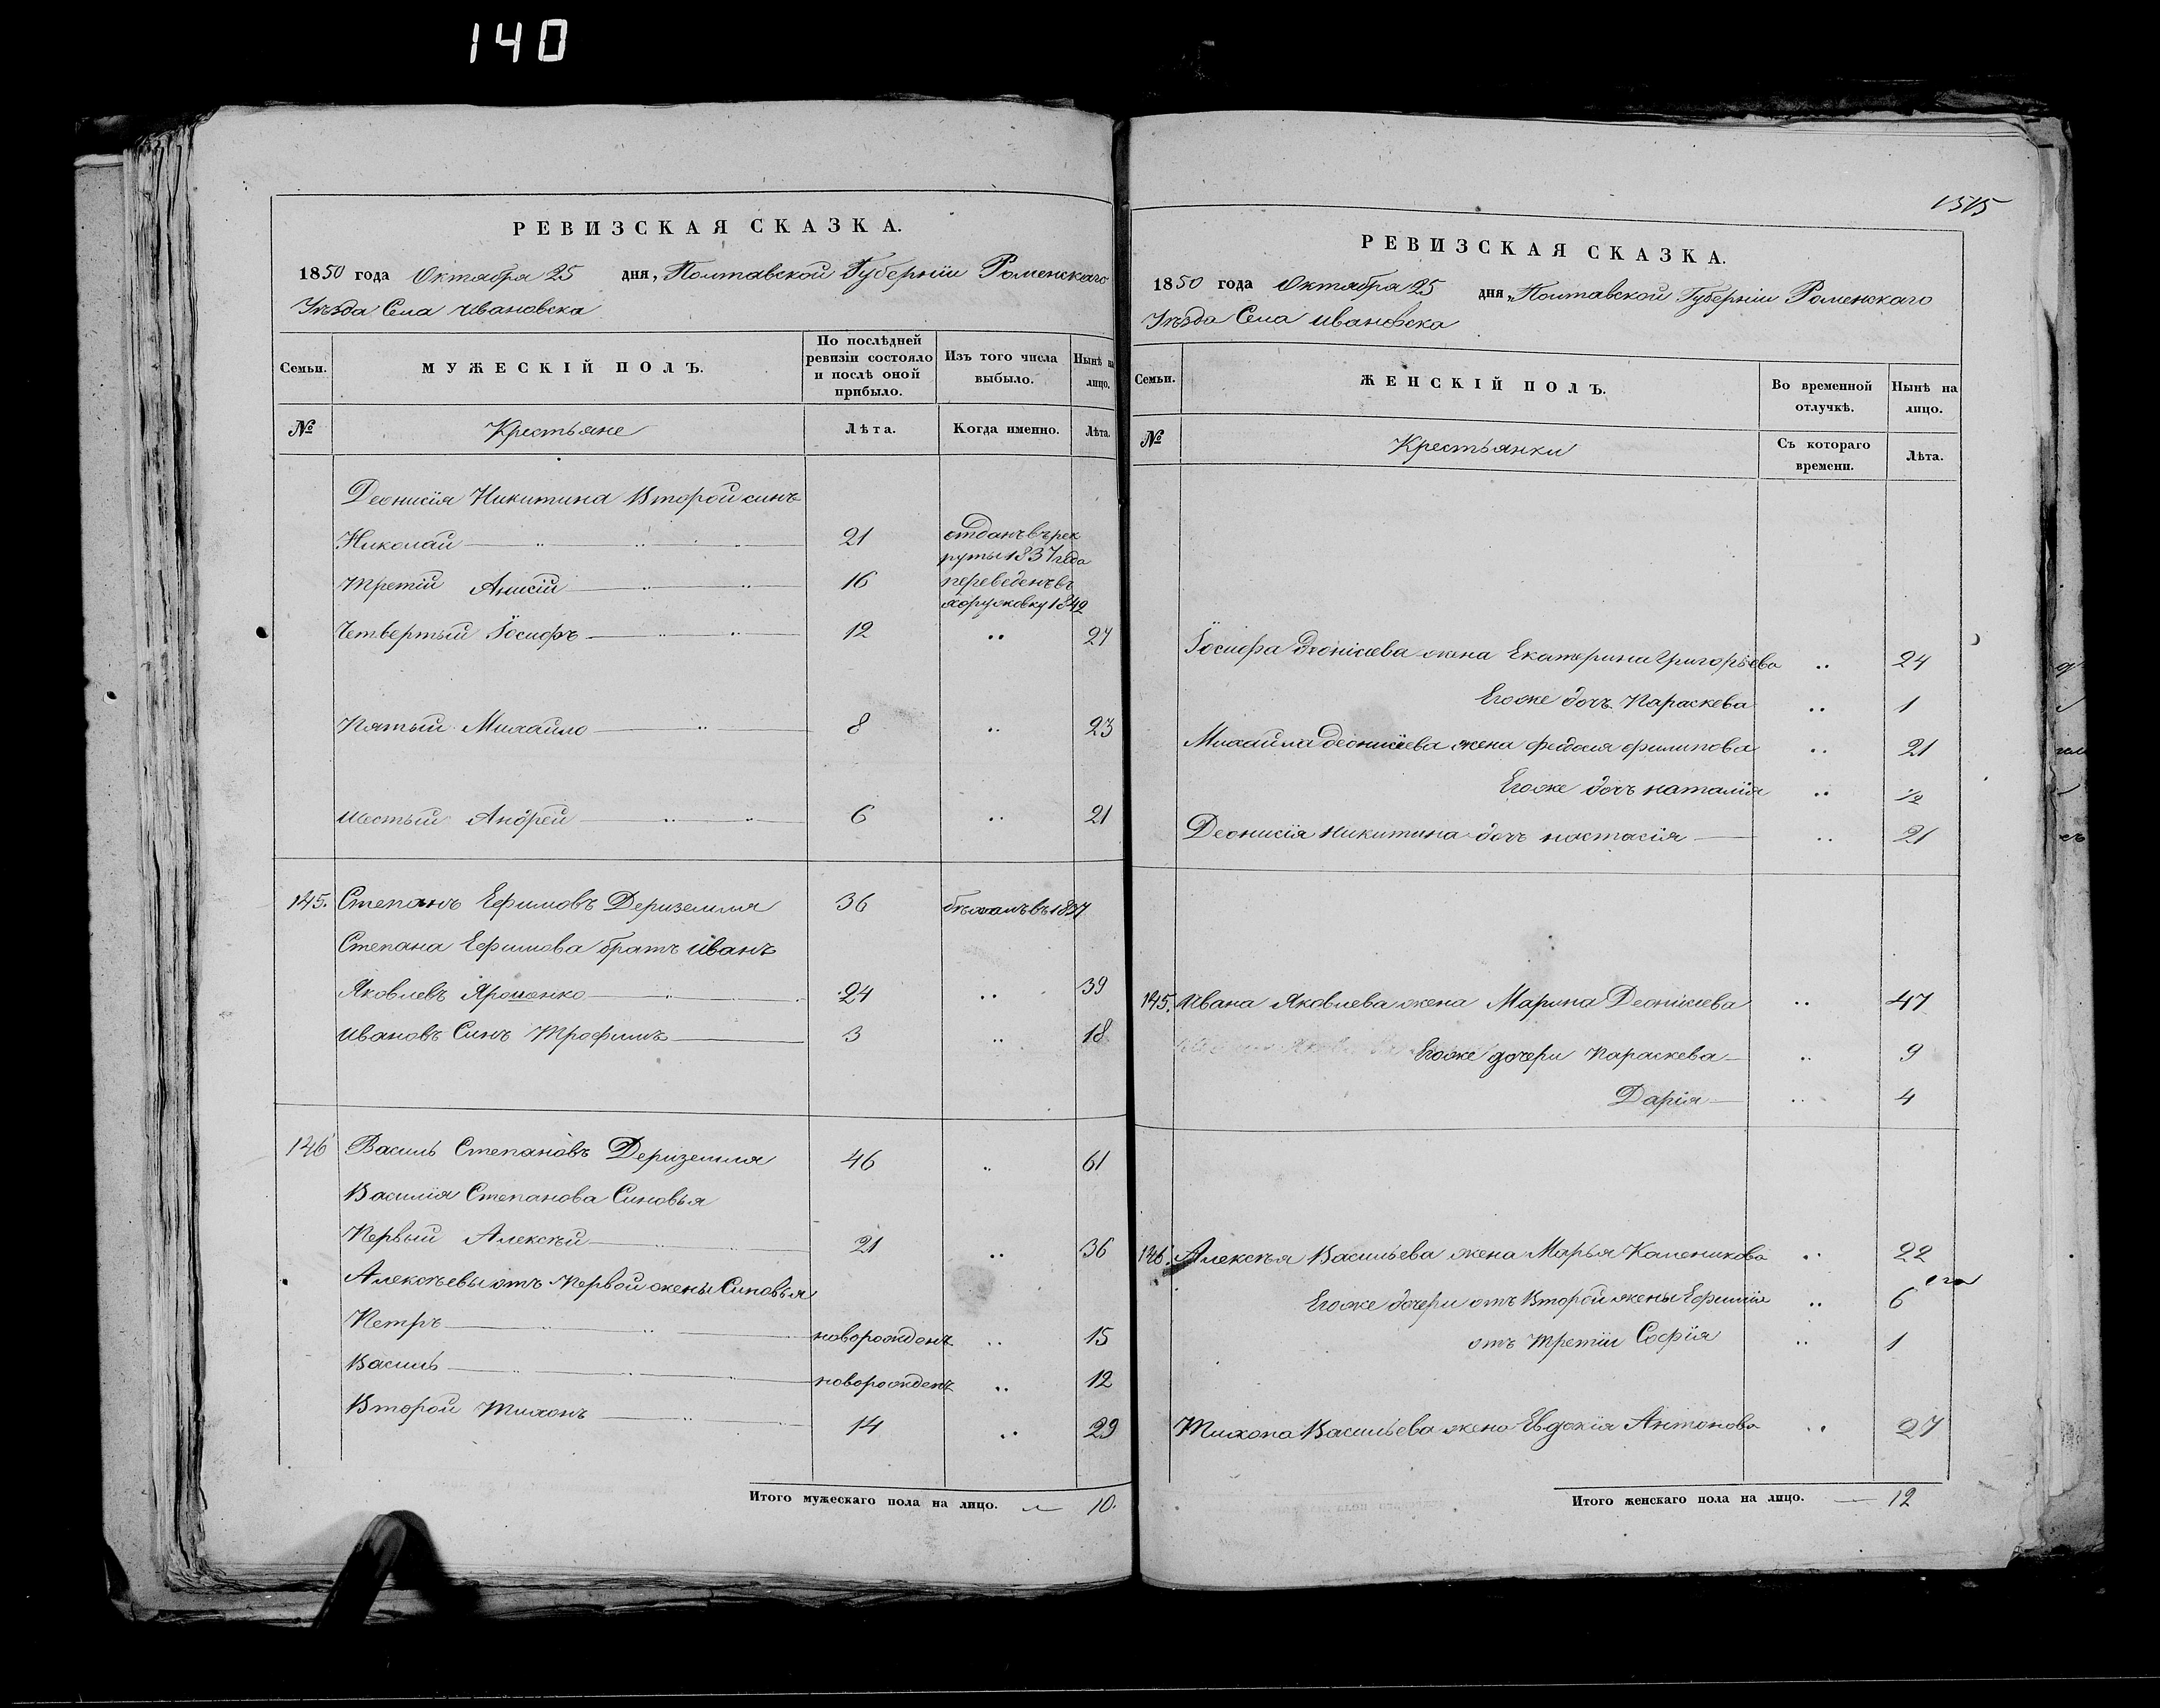 140
РЕВИЗСКАЯ СКАЗКА.
1850 года Октября 25 дня, Полтавской Губерніи Роменскаго
Уѣзда Села Ивановска
Семьи. МУЖЕСКІЙ ПОЛЪ. По послѣдней ревизіи состояло и послѣ оной прибыло. Изъ того числа выбыло. Нынѣ на лицо.
№ Крестьяне Лѣта. Когда именно. Лѣта.
Деонисія Никитина Второй синъ
Николай 21 отданъ въ рек
руты 1837 года
Третій Анисій 16 переведенъ въ
хоружовку 1842
Четвертый Іосифъ 12 27
Пятый Михайло 8 23
шестый Андрей 6 21
145. Степанъ Ефимовъ Деризелля 36 бѣжалъ въ 1837
Степана Ефимова братъ Иванъ
Яковлевъ Ярошенко 24 39
Ивановъ Синъ Трофимъ 3 18
146 Василь Степановъ Деризелля 46 61
Василія Степанова Синовья
Первый Алексѣй 21 36
Алексѣевы отъ Первой жены Синовья
Петръ новорожденъ 15
Василь новорожденъ 12
Второй Тихонъ 14 29
Итого мужескаго пола на лицо. 10.
1515
РЕВИЗСКАЯ СКАЗКА.
1850 года Октября 25 дня, Полтавской Губерніи Роменскаго
Уѣзда Села Ивановска
Семьи. ЖЕНСКІЙ ПОЛЪ. Во временной отлучкѣ. Нынѣ на лицо.
№ Крестьянки Съ котораго времени. Лѣта.
Іосифа Деонісіева жена Екатерина Григорьева 24
Егоже дочъ Параскева 1
Михайла Деонисіева жена Федосія Филипова 21
Егоже дочъ Наталія 1/2
Деонисія Никитина дочъ Настасія 21
145. Ивана Яковлева жена Марина Деонісіева 47
Егоже дочери Параскева 9
Дарія 4
146. Алексѣя Васильева жена Марья Каленикова 22
Егоже дочери отъ Второй жены Ефимія 6
отъ Третіи Софія 1
Тихона Васильева жена Евдокія Антонова 27
Итого женскаго пола на лицо. 12